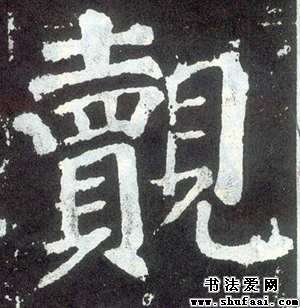 覿
书法爱网
www.shufaai.com